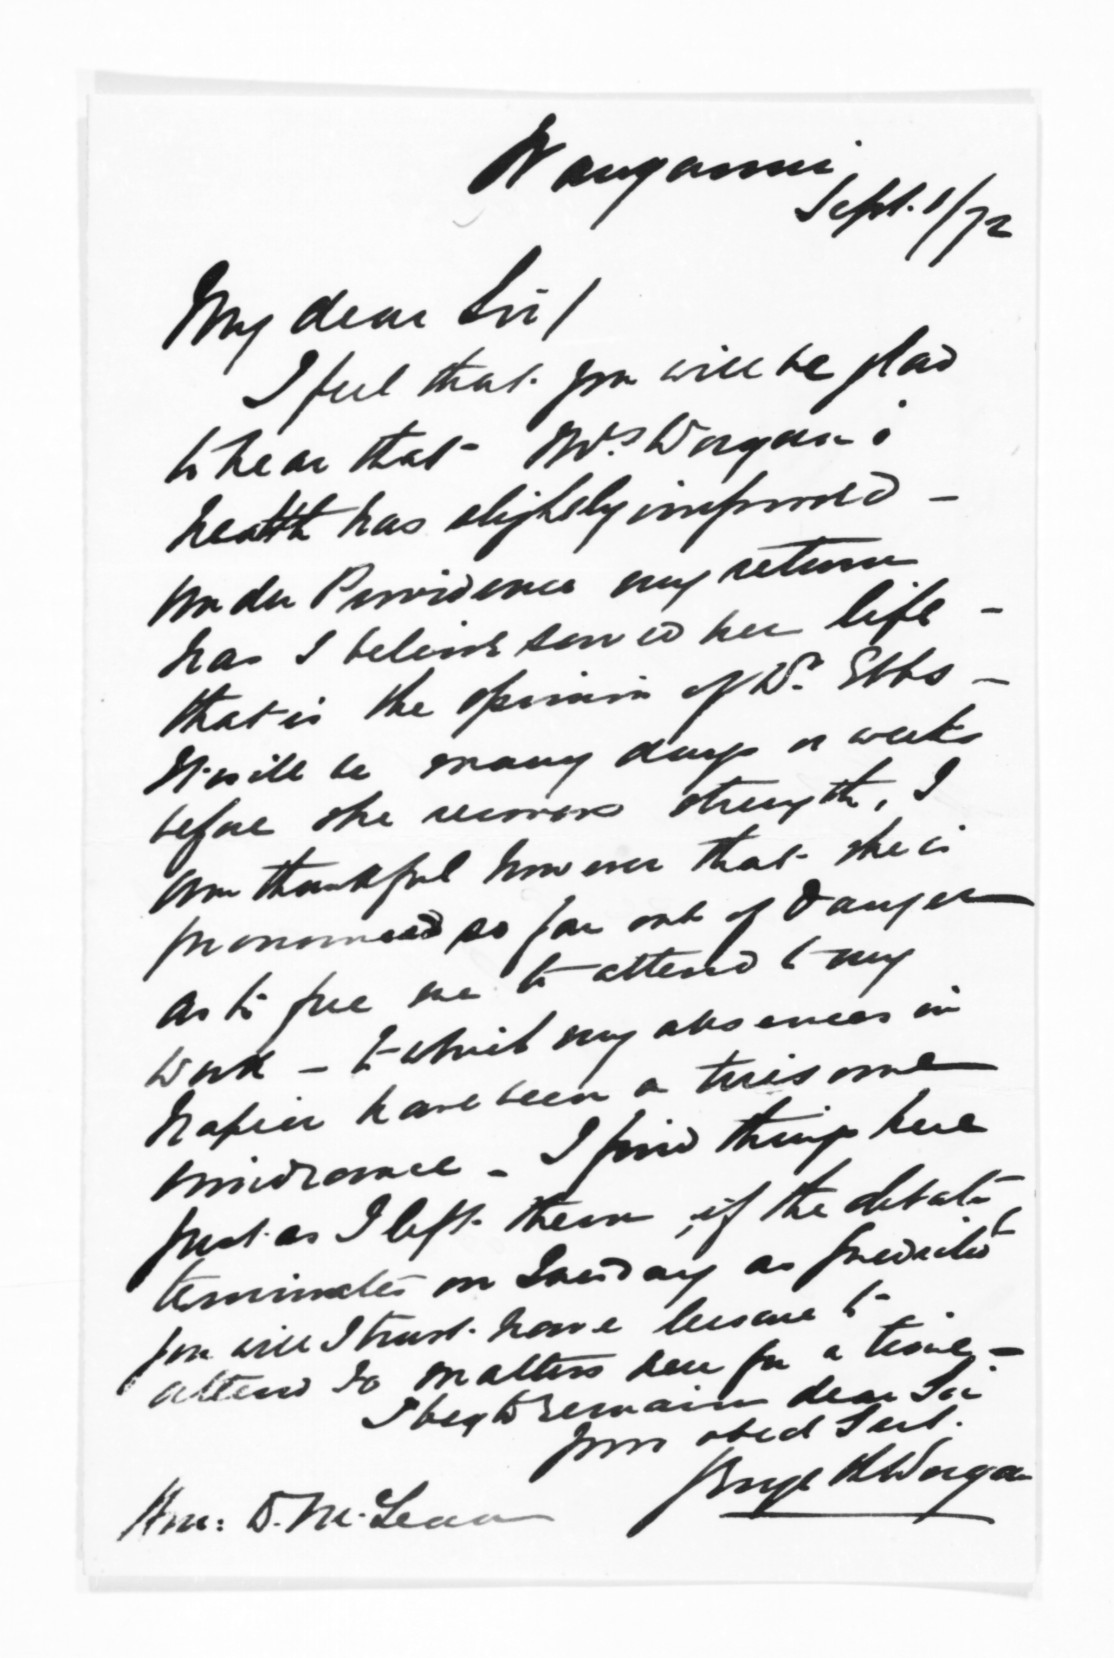 Wanganui
Sept. 1/72
My dear Sir/
I feel that you will be glad
to hear that Mrs Worgan's
health has slightly improved –
under Providence my return
has I believe saved her life –
that is the opinion of Dr. Ebbs –
It will be many days or weeks
before she recovers strength, I
am thankful however that she is
pronounced so far out of danger
as to free me to attend to my
work – to which my absences in
Napier have been a
hindrance – I find things here
just as I left them, if the debate
terminates on Tuesday as predicted
you will I trust have leisure to
attend to matters here for a time –
I beg to remain dear Sir
Your obed Servt.
George H Worgan
Hon: D. McLean